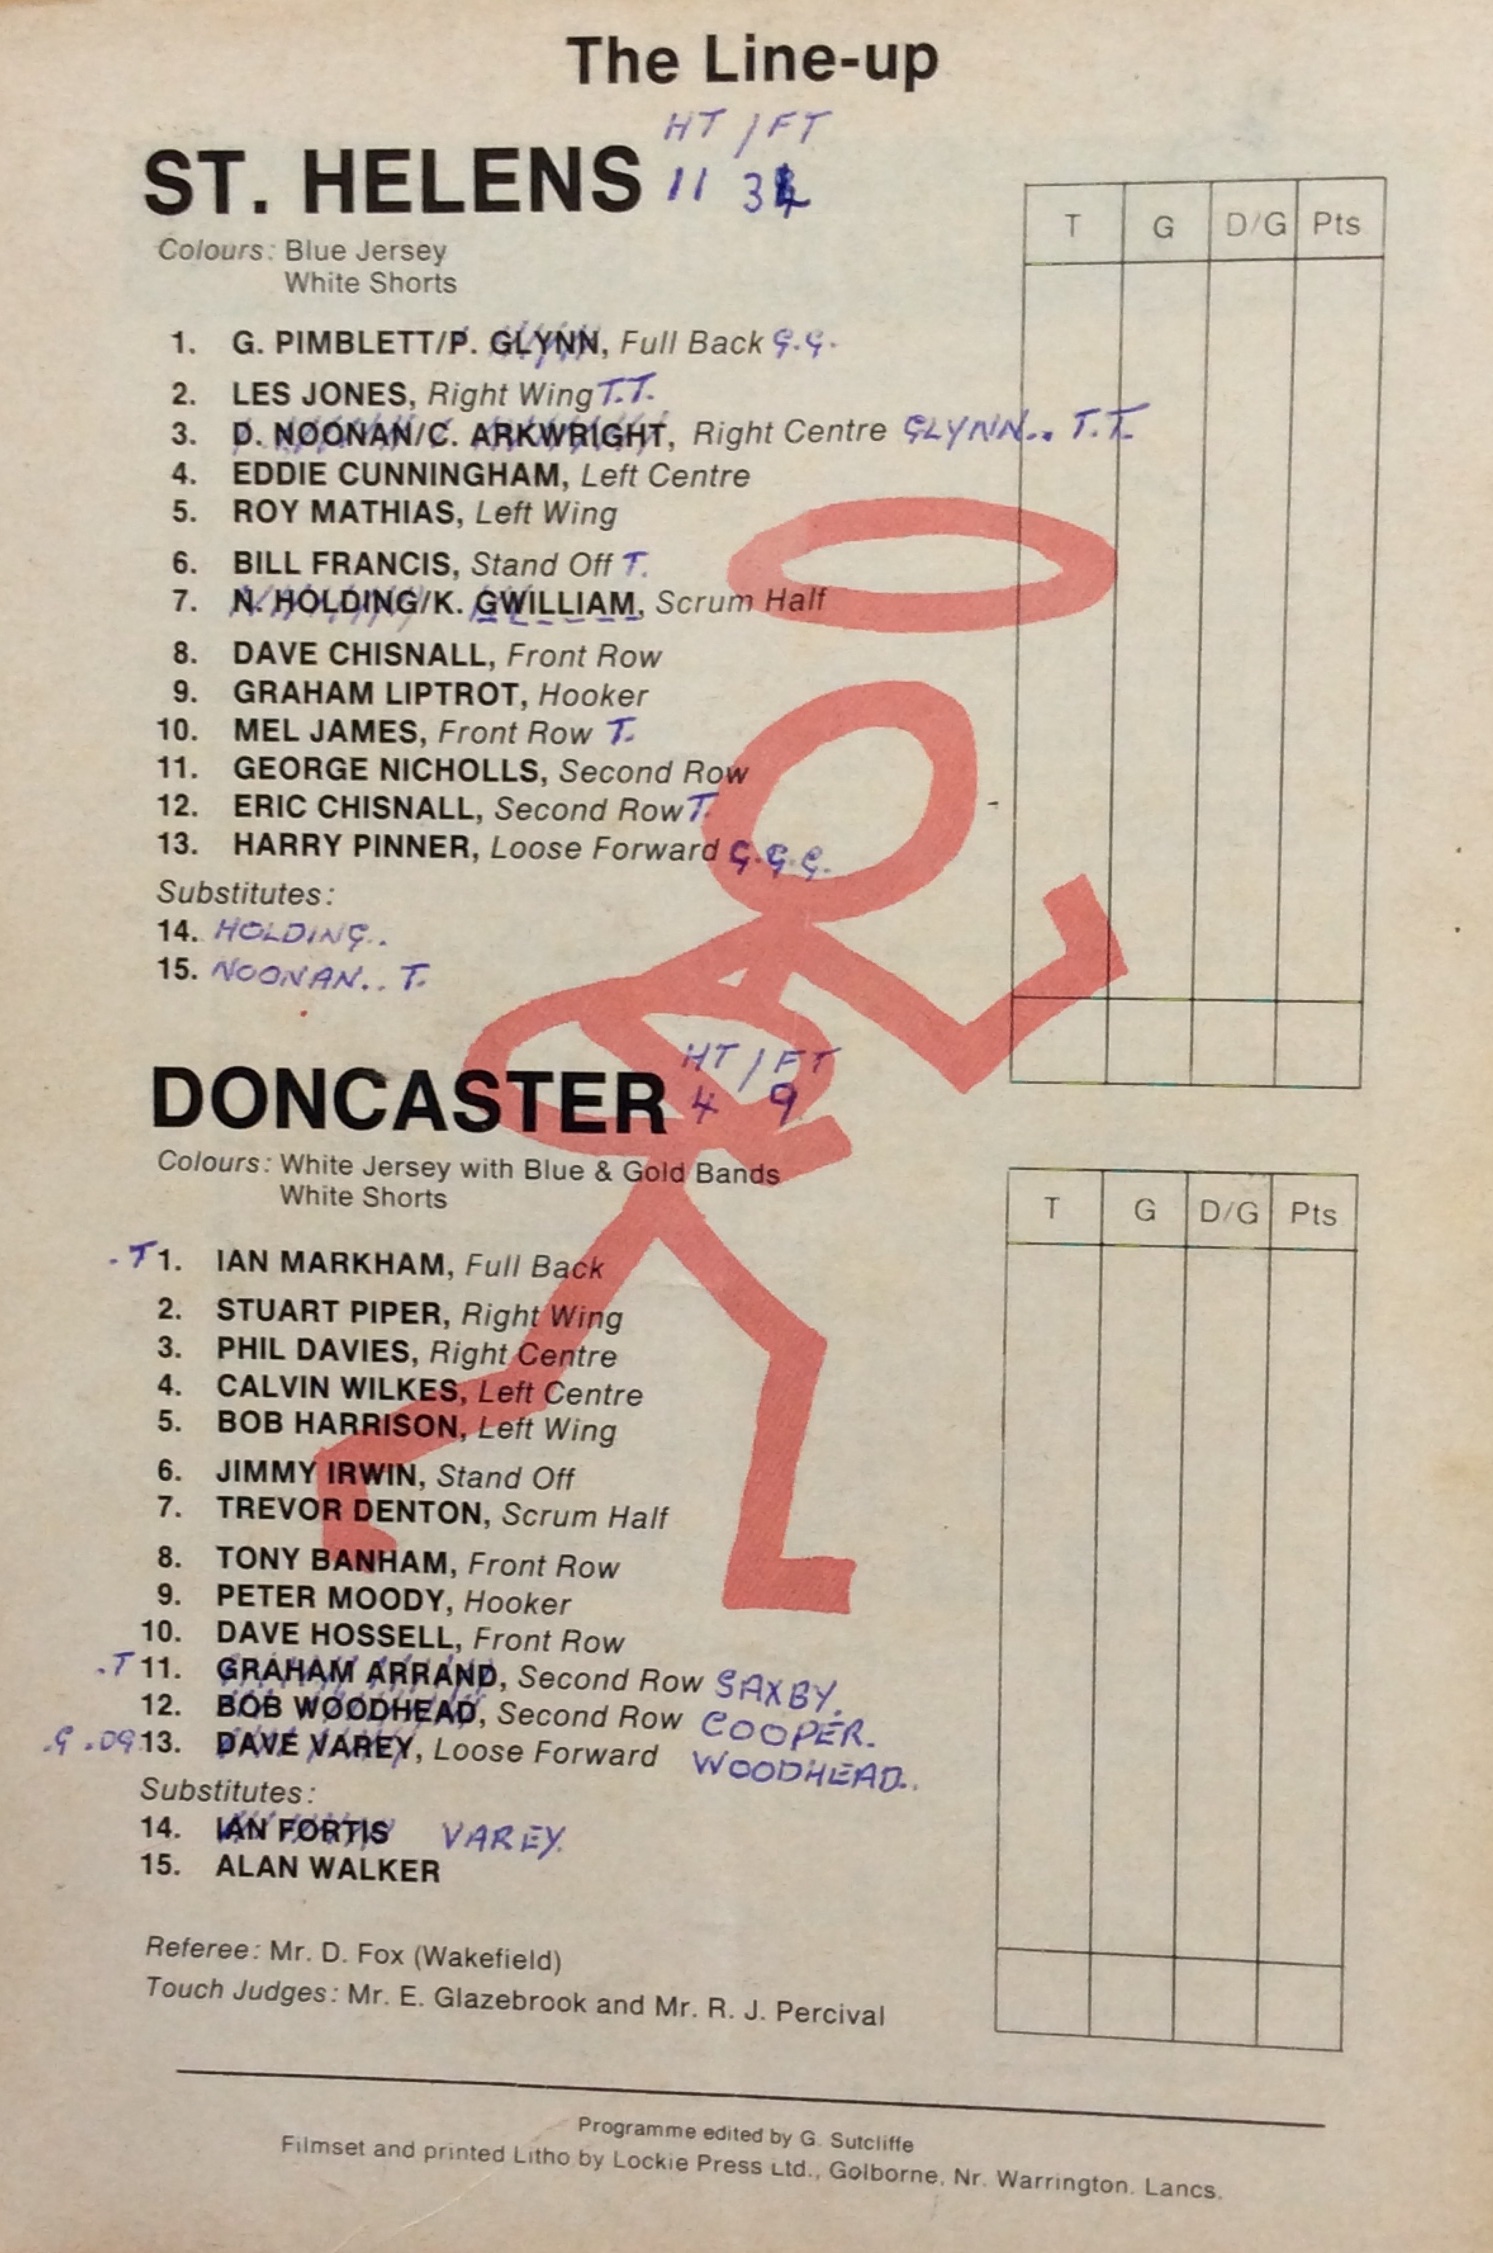 The Line-up
HT / FT
ST. HELENS 11 34
Colours: Blue Jersey
White Shorts
T G D/G Pts
1. G. PIMBLETT/P. GLYNN, Full Back G.G.
2. LES JONES, Right Wing T.T.
3. D. NOONAN/C. ARKWRIGHT, Right Centre GLYNN.. T.T.
4. EDDIE CUNNINGHAM, Left Centre
5. ROY MATHIAS, Left Wing
6. BILL FRANCIS, Stand Off T.
7. N. HOLDING/K. GWILLIAM, Scrum Half
8. DAVE CHISNALL, Front Row
9. GRAHAM LIPTROT, Hooker
10. MEL JAMES, Front Row T.
11. GEORGE NICHOLLS, Second Row
12. ERIC CHISNALL, Second Row T.
13. HARRY PINNER, Loose Forward G.G.G.
Substitutes:
14. HOLDING..
15. NOONAN.. T.
HT / FT
DONCASTER 4 9
Colours: White Jersey with Blue & Gold Bands
White Shorts
T G D/G Pts
.T 1. IAN MARKHAM, Full Back
2. STUART PIPER, Right Wing
3. PHIL DAVIES, Right Centre
4. CALVIN WILKES, Left Centre
5. BOB HARRISON, Left Wing
6. JIMMY IRWIN, Stand Off
7. TREVOR DENTON, Scrum Half
8. TONY BANHAM, Front Row
9. PETER MOODY, Hooker
10. DAVE HOSSELL, Front Row
.T 11. GRAHAM ARRAND, Second Row SAXBY.
12. BOB WOODHEAD, Second Row COOPER.
.G .DG 13. DAVE VAREY, Loose Forward WOODHEAD..
Substitutes:
14. IAN FORTIS VAREY.
15. ALAN WALKER
Referee: Mr. D. Fox (Wakefield)
Touch Judges: Mr. E. Glazebrook and Mr. R. J. Percival
Programme edited by G. Sutcliffe
Filmset and printed Litho by Lockie Press Ltd., Golborne, Nr. Warrington. Lancs.